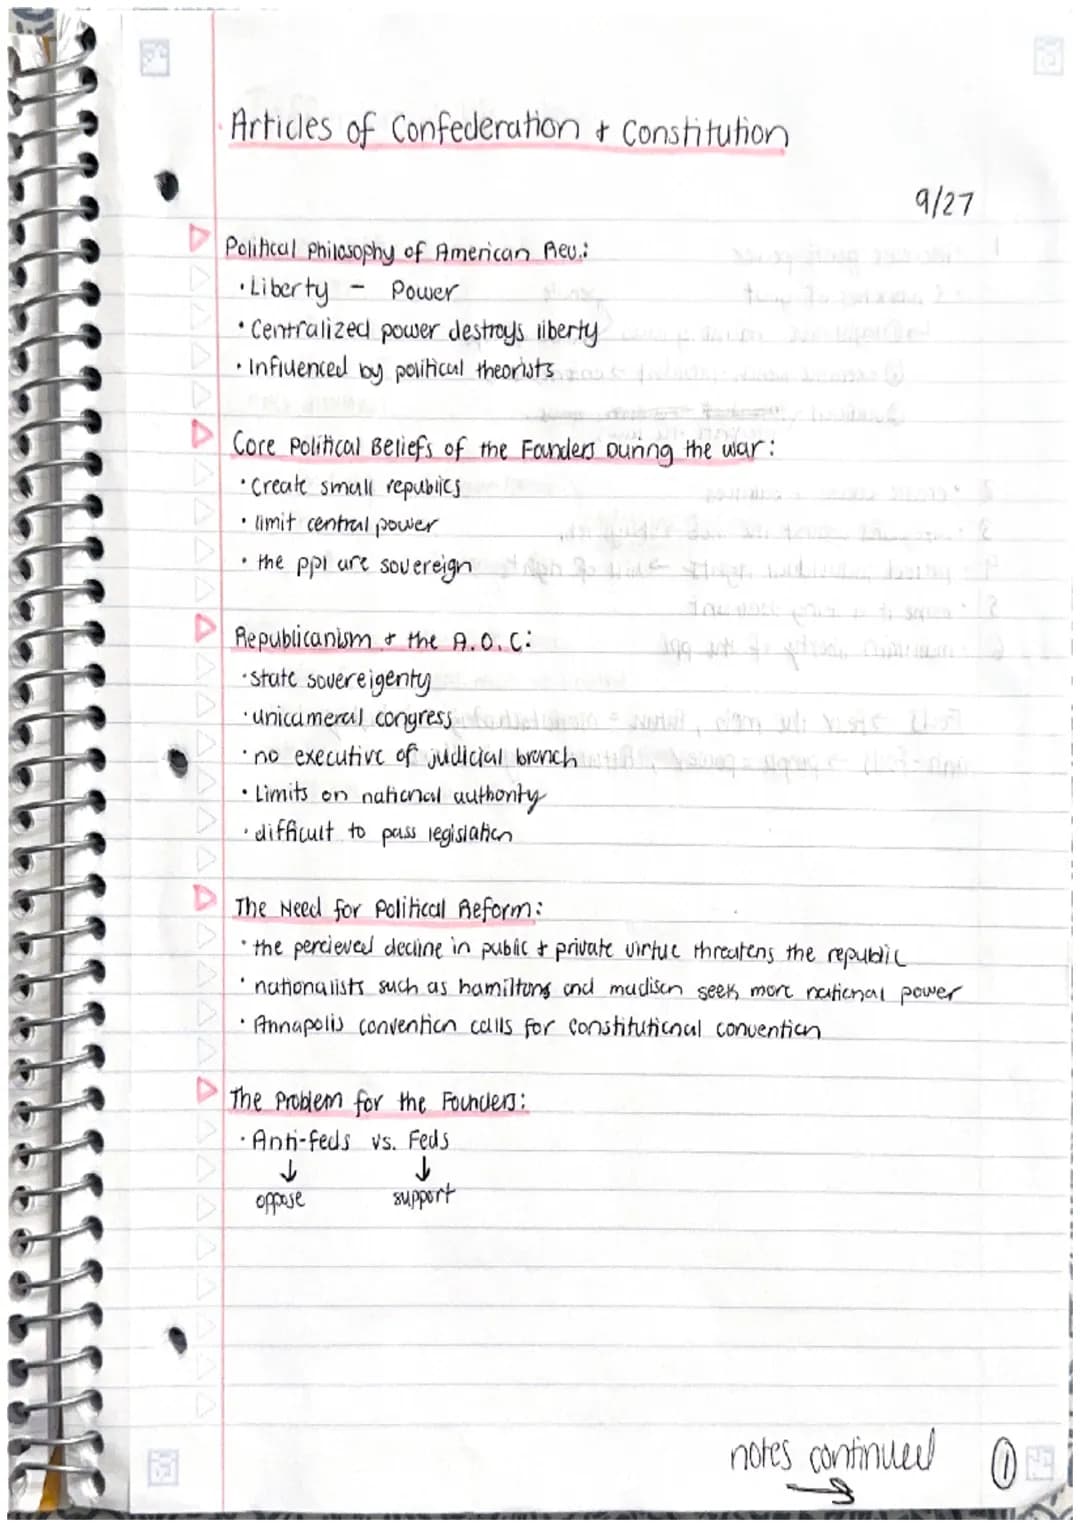 Articles of Confederation + Constitution
9/27
Political Philosophy of American Rev.:
• Liberty - Power
• Centralized power destroys liberty
• Influenced by political theorists
Core Political Beliefs of the Founders During the war:
• Create small republics
• limit central power
• the ppl are sovereign
Republicanism + the A.O.C:
• state sovereigenty
• unicameral congress
• no executive of judicial branch
• Limits on national authority
• difficult to pass legislation
The Need for Political Reform:
• the percieved decline in public + private virtue threatens the republic
• nationalists such as hamiltons and madison seek more national power
• Annapolis convention calls for constitutional convention
The Problem for the Founders:
• Anti-feds vs. Feds
↓ ↓
oppose support
notes continued 1
→